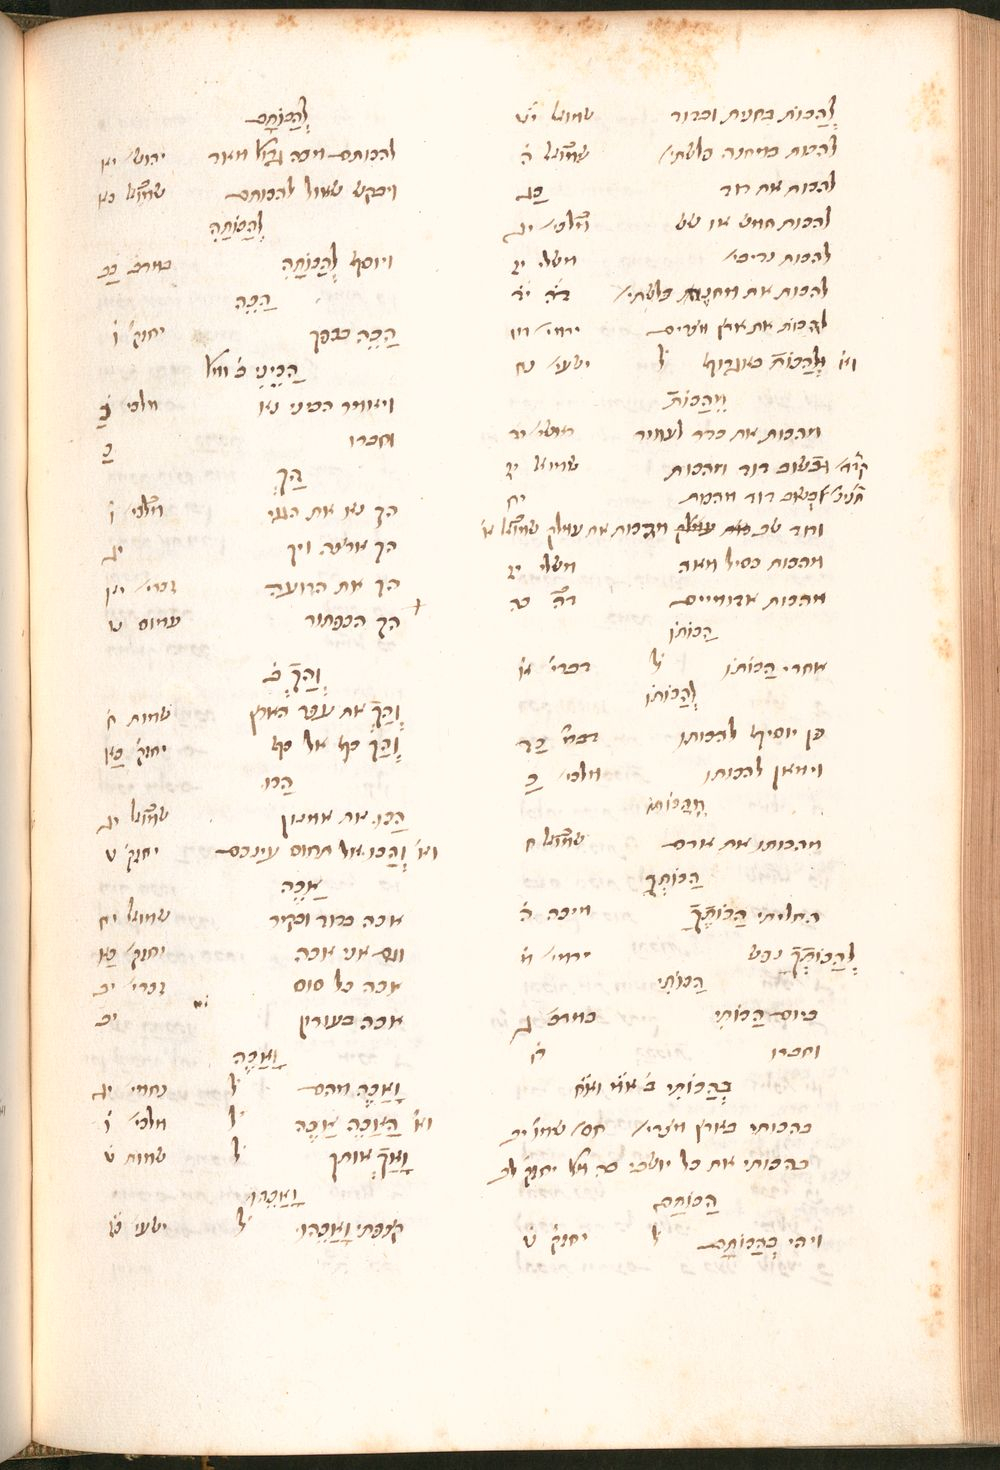 לְהַכּוֹת בחנית ובדוד שמואל יט
להכות במחנה פלשתי׳ שמואל ה
להכות את דוד כג
להכות חמש או שש מלכי׳ יג
להכות נדיבי׳ משלי יז
להכות את מחנה פלשתי׳ דה יד
להכות את ארץ מצרים ירמי׳ מו
וא׳ וּלְהַכּוֹת באגרוף ל׳ ישעי׳ נח
מֵהַכּוֹת
מהכות את כדר לעמר ראשי׳ יד
וכשוב דוד מהכות שמואל יז
כשוב דוד מהכות יח
ודוד שב מהכות את עמלק שמואל א
מהכות כסיל מאה משלי יז
מהכות אדומיים דה כה
הַכּוֹתוֹ
אחרי הַכּוֹתוֹ ל׳ דברי׳ א
לְהַכּוֹתוֹ
פן יוסיף להכותו דברי׳ כה
וימאן להכותו מלכי׳ כ
מֵהַכּוֹתוֹ
מהכותו את ארם שמואל ח
הַכּוֹתֶךָ
החליתי הַכּוֹתֶךָ מיכה ו
לְהַכּוֹתְךָ נפש ירמי׳ מ
הַכּוֹתִי
ביום הַכּוֹתִי במדבר ג
וחברו ח
בְּהַכּוֹתִי
בהכותי בארץ מצרי׳ שמו׳ יב
בהכותי את כל יושבי בה יחזק׳ לב
הַכּוֹתָם
ויהי כְּהַכּוֹתָם ל׳ יחזק׳ ט
לְהַכּוֹתָם
להכותם מכה גדולה מאד יהוש׳ י
ויבקש שאול להכותם שמואל כא
לְהַכּוֹתָהּ
ויוסף לְהַכּוֹתָהּ במדבר כב
הַכֵּה
הַכֵּה בכפך יחזק׳ ו
הַכֵּינִי ב׳
ויאמר הכיני נא מלכי׳ כ
וחברו כ
הַךְ
הך נא את הגוי מלכי׳ ו
הך ארצה ויך יג
הך את הרועה זכרי׳ יג
הך הכפתור עמוס ט
וְהַךְ ב׳
וְהַךְ את עפר הארץ שמות ח
וְהַךְ כף אל כף יחזק׳ כא
הַכּוּ
הַכּוּ את אמנון שמואל יג
וא׳ וְהַכּוּ אל תחוס עינכם יחזק׳ ט
אַכֶּה
אכה בדוד ובקיר שמואל יח
וגם אני אכה יחזק׳ כא
אכה כל סוס זכרי׳ יב
אכה בעורון יב
וָאַכֶּה
וָאַכֶּה מהם ל׳ נחמי׳ יג
וא׳ הַאַכֶּה אַכֶּה ל׳ מלכי׳ ו
וָאַךְ אותך ל׳ שמות ט
וָאַכֵּהוּ
קצפתי וְאַכֵּהוּ ל׳ ישעי׳ נז